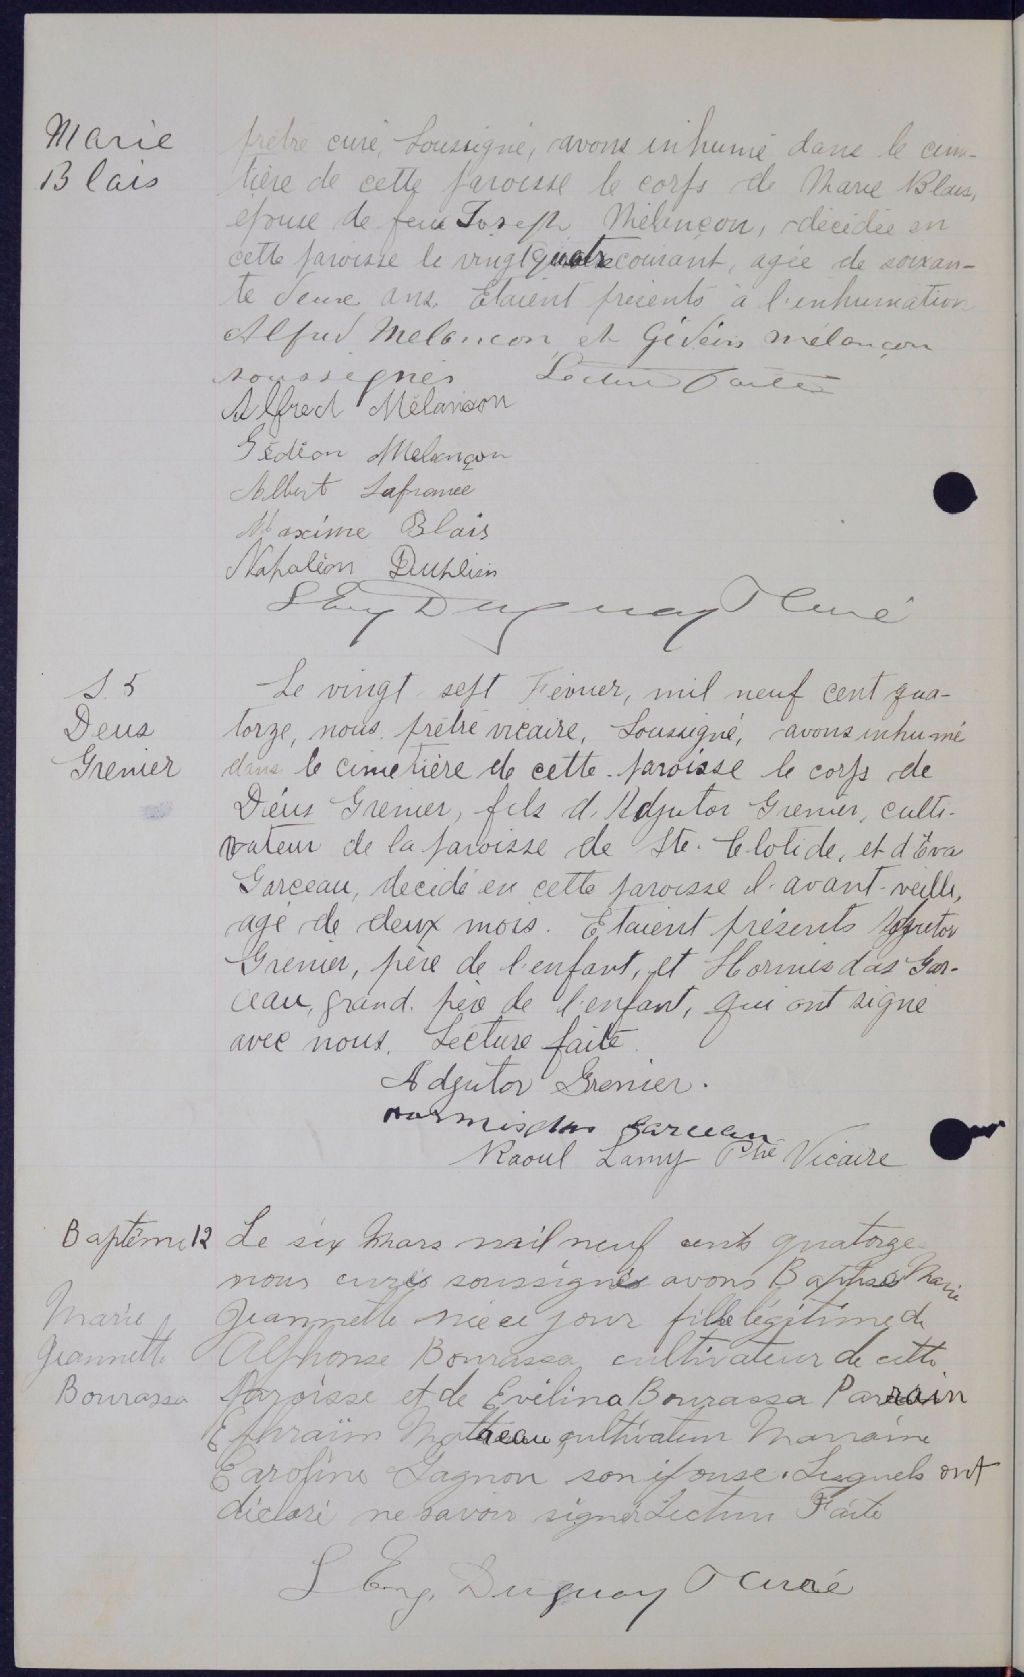 Marie
Blais
prêtre curé, soussigné, avons inhumé dans le cime-
tière de cette paroisse le corps de Marie Blais,
épouse de feue Joseph Mélençon, décédée en
cette paroisse le vingt quatre courant, agée de soixan-
te deux ans. Etaient présents à l'inhumation
Alfred Melancon et Gédéon mélançon
soussignés Lecture faite
Alfred Mélancon
Gédéon Melençon
Albert Lafrance
Maxime Blais
Napoléon Duplein
L Eug Duguay Ptre Curé
S. 5
Deus
Grenier
Le vingt sept Fevrier, mil neuf cent qua-
torze, nous. prêtre vicaire, soussigné, avons inhumé
dans le cimetière de cette paroisse le corps de
Diéus Grenier, fils d'Adjutor Grenier, culti-
vateur de la paroisse de Ste. Clotide, et d'Eva
Garceau, decidé en cette paroisse l'avant-veille,
agé de deux mois. Etaient présents Adjutor
Grenier, père de l'enfant, et Hormisdas Gar-
ceau, grand. père de l'enfant, qui ont signé
avec nous. Lecture faite.
Adjutor Grenier.
Hormisdas Garceau
Raoul Lamy Ptre Vicaire
Baptême 12
Marie
Jeannette
Bourassa
Le six Mars mil neuf cents quatorze
nous curé soussigné avons Baptisé Marie
Jeannette née ce jour fille légitime de
Alphonse Bourassa cultivateur de cette
Paroisse et de Evélina Bourassa Parrain
Ephraïm Motteau cultivateur Marraine
Caroline Gagnon son épouse. Lesquels ont
déclaré ne savoir signer Lecture Faite
L Eug. Duguay Ptre Curé